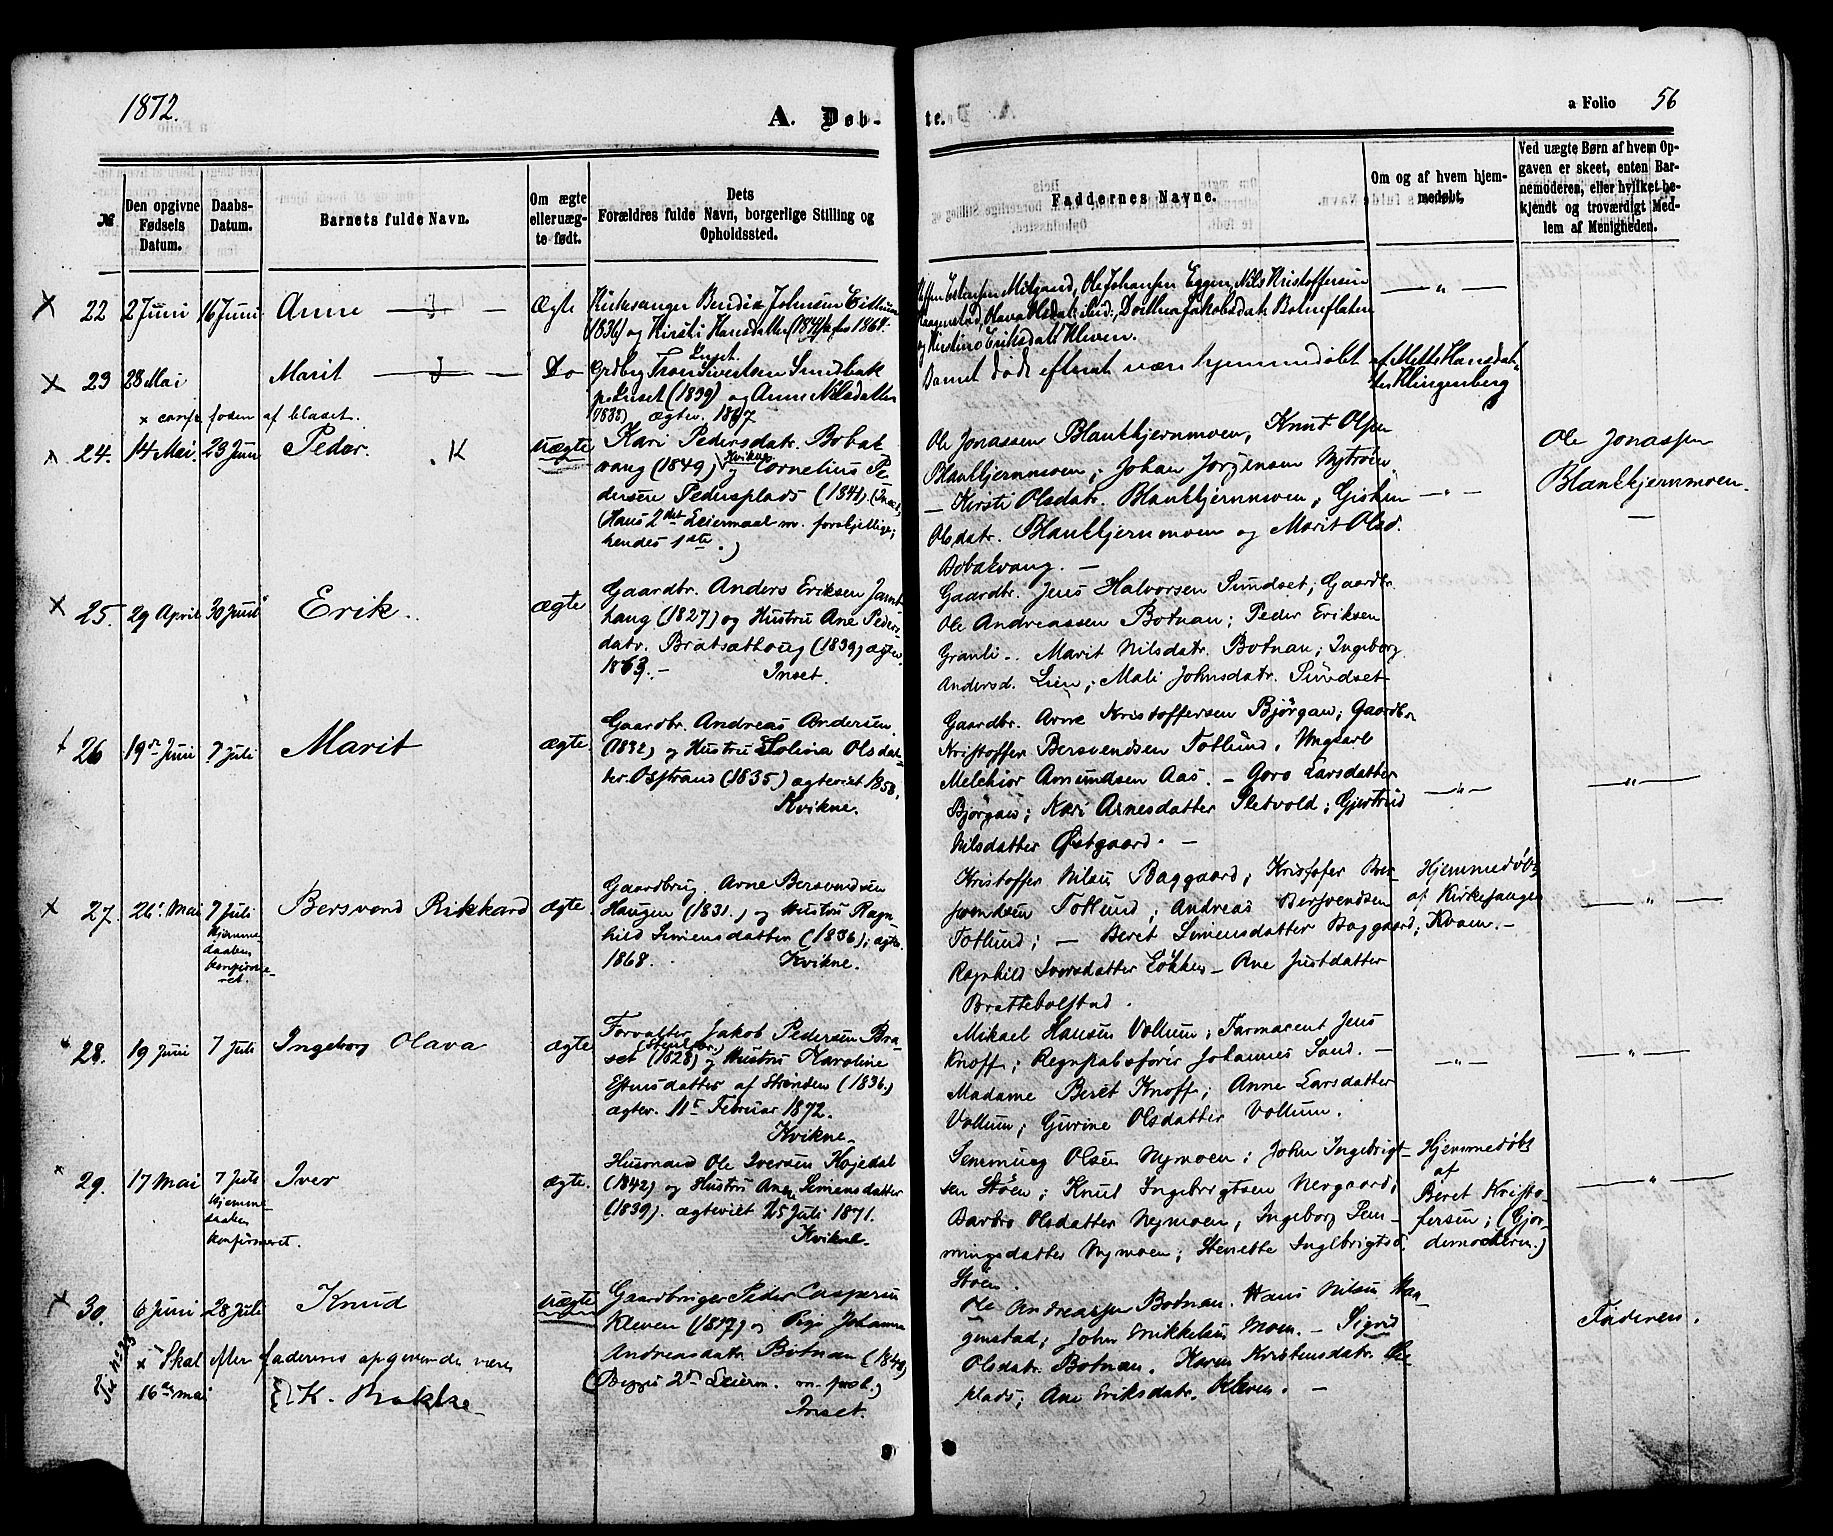 1872.
A. Døb-
te.
a Folio 56
№
Den opgivne
Fødsels
Datum.
Daabs-
Datum.
Barnets fulde Navn.
Om ægte
eller uæg-
te født.
Dets
Forældres fulde Navn, borgerlige Stilling og
Opholdssted.
Faddernes Navne.
Om og af hvem hjem-
medøbt.
Ved uægte Børn af hvem Op-
gaven er skeet, enten Bar-
nemoderen, eller hvilket be-
kjendt og troværdigt Med-
lem af Menigheden.
22 2 Juni 16 Juni Anne — I — Ægte
Kirkesanger Bendix Johnsen
(1836) og Kirsti Hansdatter 1868.
Estensen Ole Johansen Eggen, Nils Kristoffersen
Haagenstad, Olava Olsdatr. Dorthea Jakobsdatr. Botneflaten
og Eriksdatr. Kleven.
— " —
23 28 Mai Marit — I — Do
Inset.
Sivertsen Sundbak
Inset (1839) og Anne Nilsdatter
1838) ægtev. 1867
Barnet døde efterat være hjemmedøbt af Mette Hansdat-
ter Klingenberg
af bladet.
24. 14 Mai. 23 Juni Peder. K uægte
Kari Pedersdatr. Bobak
vang (1849) Kvikne og Cornelius Pe-
dersen Pedersplads (1848) (Inset,
(Hans 2det Leiermaal m. forskjellige;
hendes 1ste.)
Ole Jonassen Blankkjernmoen, Knut Olsen
Blankkjernmoen; Johan Jørgensen Nytrøen
— Kirsti Olsdatr. Blankkjernmoen; Gisken
Olsdatr. Blankkjernmoen og Marit Olsd.
Bobakvang. —
— " —
Ole Jonassen
Blankkjernmoen.
—
25. 29 April 30 Juni Erik. ægte
Gaardbr. Anders Eriksen Jamt-
haug (1827) og Hustru Ane Peders-
datr. Bratsæthaug (1839) ægtev.
1863. — Inset.
Gaardbr. Jens Halvorsen Sundset; Gaardbr.
Ole Andreassen Botnan; Peder Eriksen
Granli —. Marit Nilsdatr. Botnan; Ingeborg
Andersd. Lien; Mali Johnsdatr. Sundset
26 19de Juni 7 Juli Marit ægte.
Gaardbr. Andreas Andersen
(1832) og Hustru Lolina Olsdat-
ter. (1835) ægteviet 1858.
Kvikne.
Gaardbr. Arne Kristoffersen Bjørgan; Gaardbr
Kristoffer Bersvendsen Totlund, Ungkarl
Melchior Amundsen Aas. — Goro Larsdatter
Bjørgan; Kari Arnesdatter Sletvold; Gjertrud
Nilsdatter Østgaard. —
— " —
— " —
27. 26. Mai 7 Juli Bersvend Rikkard ægte.
Hjemme-
daaben
konfirme-
ret.
Gaardbrug. Arne Bersvendsen
Haugen (1831.) og Hustru Ragn-
hild Simensdatter (1836); ægtev.
1868. Kvikne.
Kristoffer Nilsen Baggaard; Kristofer Ber-
svendsen Totlund; Andreas Bersvendsen
Totlund; — Beret Simensdatter Baggaard;
Ragnhild Iversdatter Løkken — Ane Justdatter
Brattebolstad.
Hjemmedøbt
af Kirkesanger
Kvam. —
— " —
28. 19 Juni 7 Juli Ingeborg Olava ægte
Forvalter Jakob Pedersen Bra-
set (1828) og Hustru Karoline
Estensdatter af Strønden (1836.)
ægtev. 11te Februar 1872.
Kvikne —
Mikael Hansen Vollum; Farmaceut Jens
Knoff; Regnskabsfører Johannes Sand. —
Madame Beret Knoff; Anne Larsdatter
Vollum; Gurine Olsdatter Vollum.
— " —
— " —
29. 17 Mai 7 Juli Iver ægte.
Hjemme-
daaben
konfirmeret.
Husmand Ole Iversen Kojedal
(1842) og Hustru Ane Simensdatter
(1839). ægteviet 25 Juli 1871.
Kvikne.
Semming Olsen Nymoen; John Ingebrigt-
sen Støen; Knut Ingebrigtsen Nergaard;
Barbro Olsdatter Nymoen; Ingeborg Sem-
mingsdatter Nymoen; Stenette Ingebrigtsd.
Støen.
Hjemmedøbt
af
Beret Kristo-
fersen; (Gjor-
demoderen.)
— " —
30. 6 Juni 28 Juli Knud uægte
Gaardbruger Peder Caspersen
Kleven (1817) og Pige Johanna
Andreasdatr. Botnan (1840)
(Begges 2det Leierm. m. forsk.)
Inset.
Ole Andreassen Botnan. Hans Nilsen Haa-
genstad; John Mikkelsen Moen. — Sigrid
Olsdatr. Botnan. Karen Kristensdatr.
plads; Ane Eriksdatr. Kleven. —
Faderen.
Til No 23
x Skal efter faderens opgivende være
16de mai K. Bakke